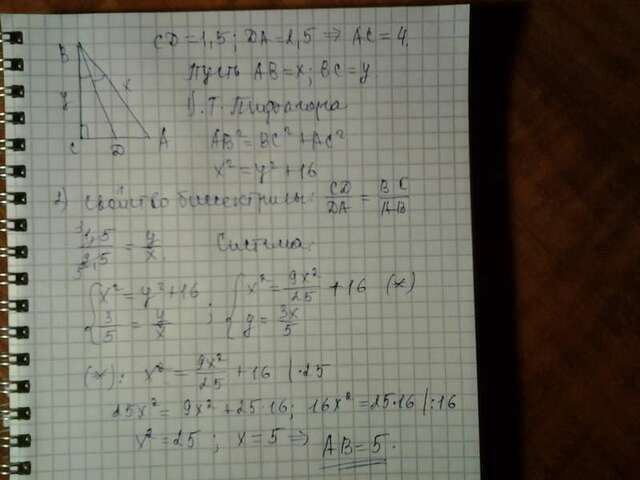 CD = 1,5 ; DA = 2,5 ⇒ AC = 4.
Пусть AB = x ; BC = y
B
y
x
C
D
A
1. Т. Пифагора
AB² = BC² + AC²
x² = y² + 16
2) Свойство биссектрисы: CD/DA = BC/AB
1,5/2,5 = y/x
3
5
Система:
{ x² = y² + 16 ; { x² = 9x²/25 + 16 (*)
3/5 = y/x y = 3x/5
(*): x² = 9x²/25 + 16 |·25
25x² = 9x² + 25·16 ; 16x² = 25·16 |:16
x² = 25 ; x = 5 ⇒ AB = 5.